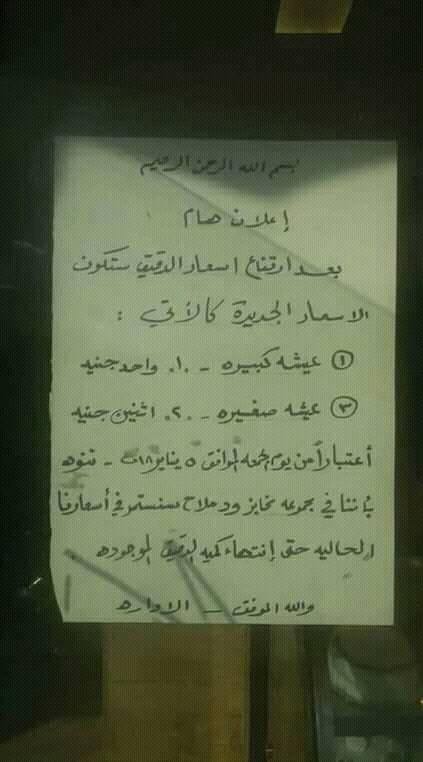 بسم الله الرحمن الرحيم
إعلان هام
بعد ارتفاع اسعار الدقيق ستكون
الاسعار الجديدة كالأتي :
① عيشه كبيره - ١٠ واحد جنيه
③ عيشه صغيره - ٢٠ اثنين جنيه
أعتباراً من يوم الجمعه الموافق ٥ يناير ٢٠١٨ - ننوه
بأننا في مجموعه مخابز ود ملاح سنستمر في أسعارنا
الحاليه حتى إنتهاء كميه الدقيق الموجوده .
والله الموفق - الاداره